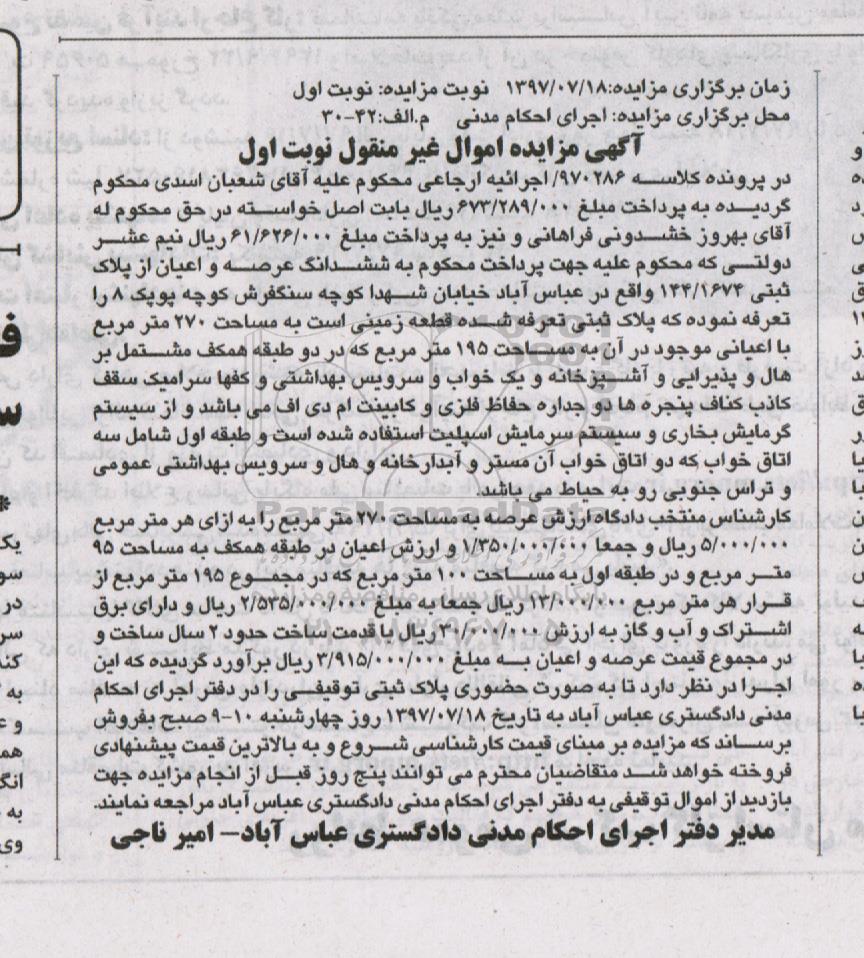 زمان برگزاری مزایده:۱۳۹۷/۰۷/۱۸ نوبت مزایده: نوبت اول
محل برگزاری مزایده: اجرای احکام مدنی م.الف:۴۲-۳۰
آگهی مزایده اموال غیر منقول نوبت اول
در پرونده کلاسه ۹۷۰۲۸۶/ اجرائیه ارجاعی محکوم علیه آقای شعبان اسدی محکوم
گردیده به پرداخت مبلغ ۶۷۳/۲۸۹/۰۰۰ ریال بابت اصل خواسته در حق محکوم له
آقای بهروز خشدونی فراهانی و نیز به پرداخت مبلغ ۶۱/۶۲۶/۰۰۰ ریال نیم عشر
دولتی که محکوم علیه جهت پرداخت محکوم به ششدانگ عرصه و اعیان از پلاک
ثبتی ۱۴۴/۱۶۷۴ واقع در عباس آباد خیابان شهدا کوچه سنگفرش کوچه پوپک ۸ را
تعرفه نموده که پلاک ثبتی تعرفه شده قطعه زمینی است به مساحت ۲۷۰ متر مربع
با اعیانی موجود در آن به مساحت ۱۹۵ متر مربع که در دو طبقه همکف مشتمل بر
هال و پذیرایی و آشپزخانه و یک خواب و سرویس بهداشتی و کفها سرامیک سقف
کاذب کناف پنجره ها دو جداره حفاظ فلزی و کابینت ام دی اف می باشد و از سیستم
گرمایش بخاری و سیستم سرمایش اسپلیت استفاده شده است و طبقه اول شامل سه
اتاق خواب که دو اتاق خواب آن مستر و آبدارخانه و هال و سرویس بهداشتی عمومی
و تراس جنوبی رو به حیاط می باشد
کارشناس منتخب دادگاه ارزش عرصه به مساحت ۲۷۰ متر مربع را به ازای هر متر مربع
۵/۰۰۰/۰۰۰ ریال و جمعا ۱/۳۵۰/۰۰۰/۰۰۰ و ارزش اعیان در طبقه همکف به مساحت ۹۵
متر مربع و در طبقه اول به مساحت ۱۰۰ متر مربع که در مجموع ۱۹۵ متر مربع از
قرار هر متر مربع ۱۳/۰۰۰/۰۰۰ ریال جمعا به مبلغ ۲/۵۳۵/۰۰۰/۰۰۰ ریال و دارای برق
اشتراک و آب و گاز به ارزش ۳۰/۰۰۰/۰۰۰ ریال با قدمت ساخت حدود ۲ سال ساخت و
در مجموع قیمت عرصه و اعیان به مبلغ ۳/۹۱۵/۰۰۰/۰۰۰ ریال برآورد گردیده که این
اجرا در نظر دارد تا به صورت حضوری پلاک ثبتی توقیفی را در دفتر اجرای احکام
مدنی دادگستری عباس آباد به تاریخ ۱۳۹۷/۰۷/۱۸ روز چهارشنبه ۱۰-۹ صبح بفروش
برساند که مزایده بر مبنای قیمت کارشناسی شروع و به بالاترین قیمت پیشنهادی
فروخته خواهد شد متقاضیان محترم می توانند پنج روز قبل از انجام مزایده جهت
بازدید از اموال توقیفی به دفتر اجرای احکام مدنی دادگستری عباس آباد مراجعه نمایند.
مدیر دفتر اجرای احکام مدنی دادگستری عباس آباد– امیر ناجی
ParsNamadData